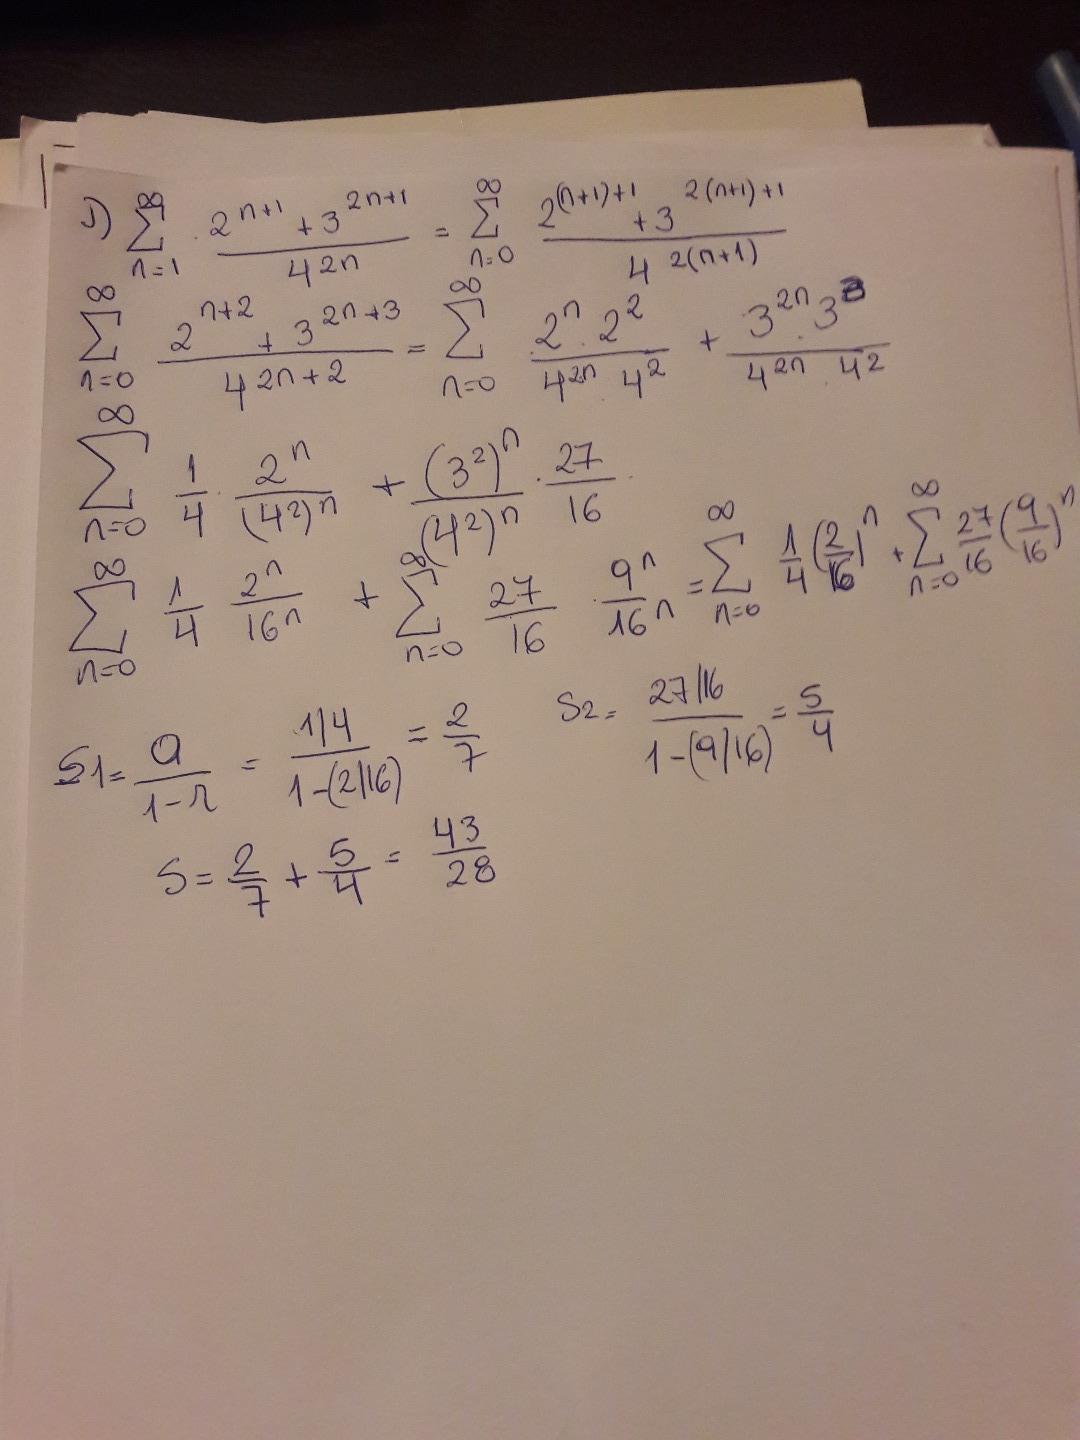 1) ∞∑n=1 (2^(n+1) + 3^(2n+1))/(4^(2n)) = ∞∑n=0 (2^((n+1)+1) + 3^(2(n+1)+1))/(4^(2(n+1)))
∞∑n=0 (2^(n+2) + 3^(2n+3))/(4^(2n+2)) = ∞∑n=0 (2^n · 2^2)/(4^(2n) · 4^2) + (3^(2n) · 3^3)/(4^(2n) · 4^2)
∞∑n=0 1/4 · 2^n/(4^2)^n + (3^2)^n/(4^2)^n · 27/16
∞∑n=0 1/4 2^n/16^n + ∞∑n=0 27/16 · 9^n/16^n = ∞∑n=0 1/4 (2/16)^n + ∞∑n=0 27/16 (9/16)^n
S1 = a/(1-r) = (1/4)/(1-(2/16)) = 2/7 S2 = (27/16)/(1-(9/16)) = 5/4
S = 2/7 + 5/4 = 43/28